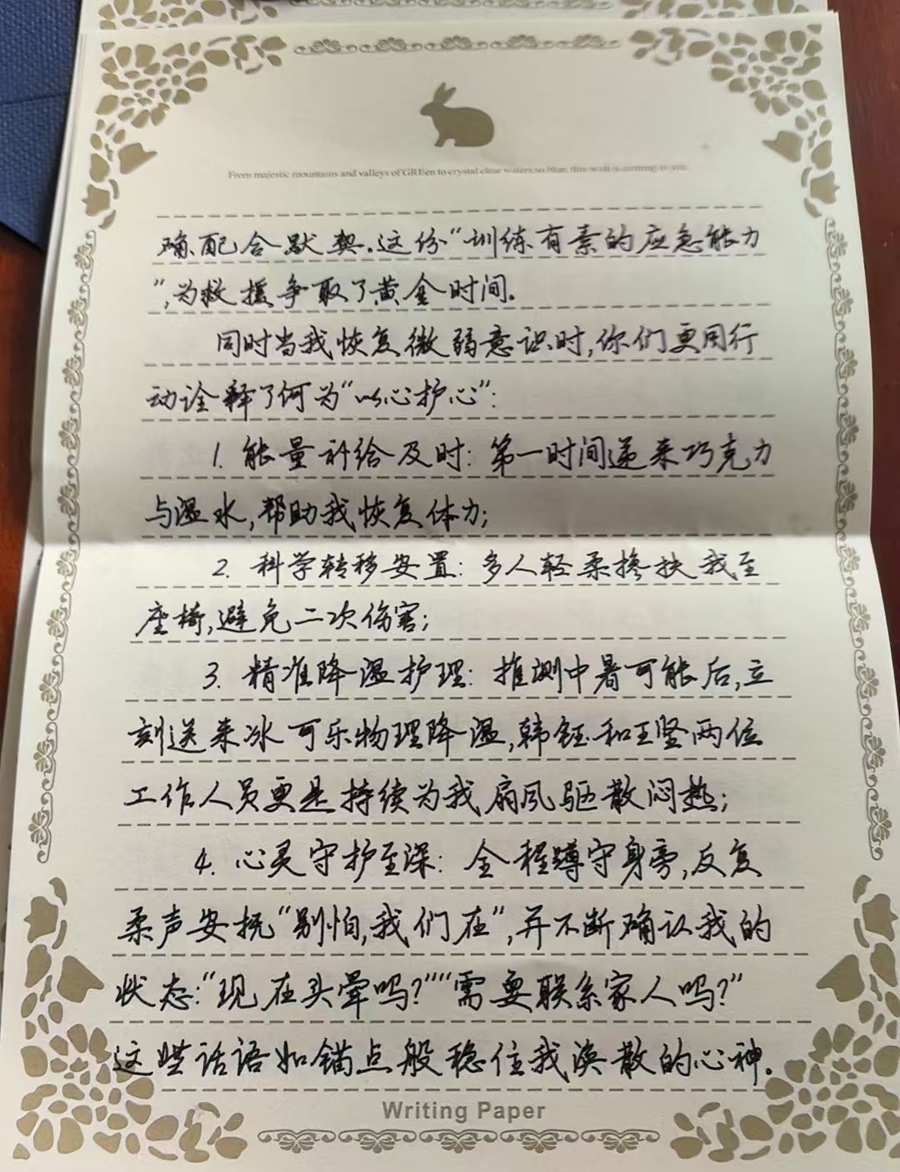 From majestic mountains and valleys of GREen to crystal clear waters so blue, this wish is coming to you.
确,配合默契.这份“训练有素的应急能力
”,为救援争取了黄金时间.
同时当我恢复微弱意识时,你们更用行
动诠释了何为“以心护心”:
1. 能量补给及时: 第一时间递来巧克力
与温水,帮助我恢复体力;
2. 科学转移安置: 多人轻柔搀扶我至
座椅,避免二次伤害;
3. 精准降温护理: 推测中暑可能后,立
刻送来冰可乐物理降温,韩钰和王坚两位
工作人员更是持续为我扇风驱散闷热;
4. 心灵守护至深: 全程蹲守身旁,反复
柔声安抚“别怕,我们在”,并不断确认我的
状态:“现在头晕吗?”“需要联系家人吗?”
这些话语如锚点般稳住我涣散的心神.
Writing Paper